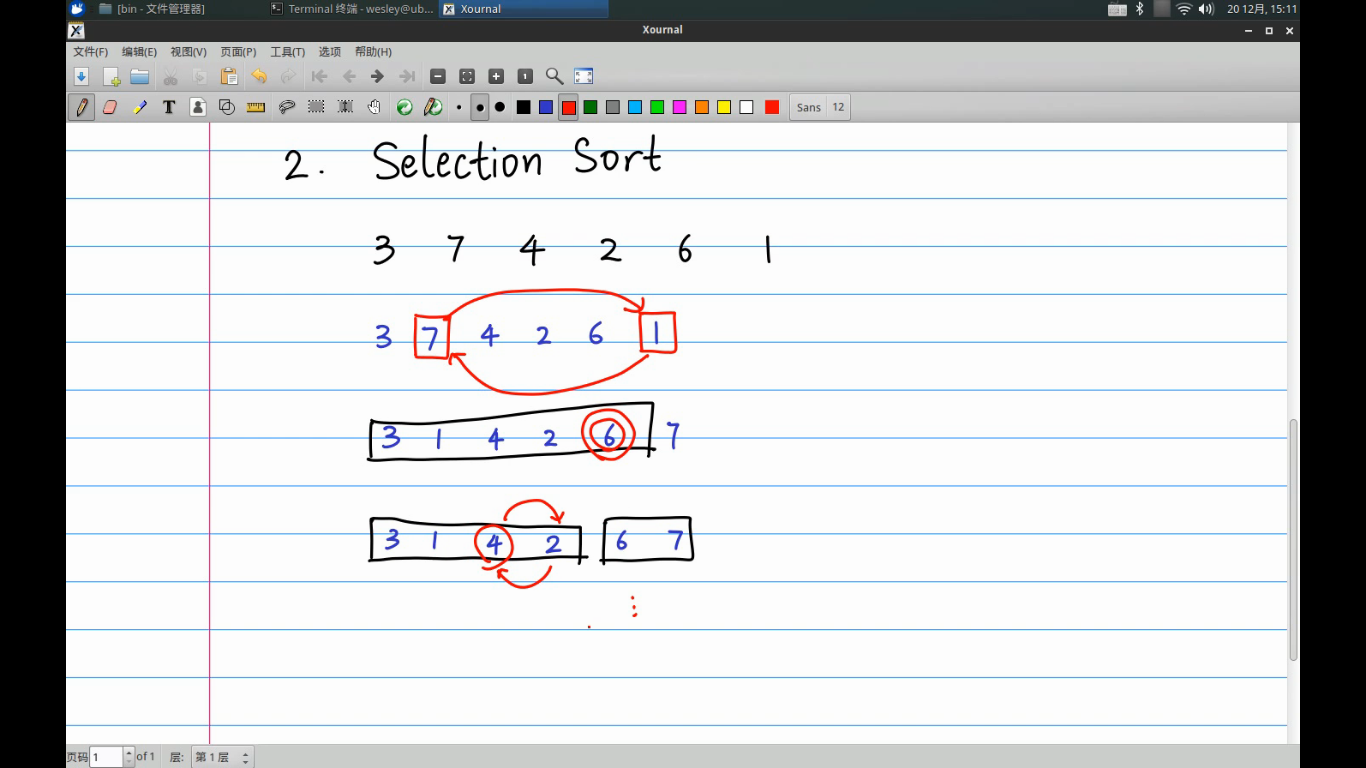 [bin - 文件管理器] Terminal 终端 - wesley@ub... Xournal 20 12月, 15:11
Xournal
文件(F) 编辑(E) 视图(V) 页面(P) 工具(T) 选项 帮助(H)
Sans 12
2. Selection Sort
3 7 4 2 6 1
3 7 4 2 6 1
3 1 4 2 6 7
3 1 4 2 6 7
页码 1 of 1 层: 第 1 层